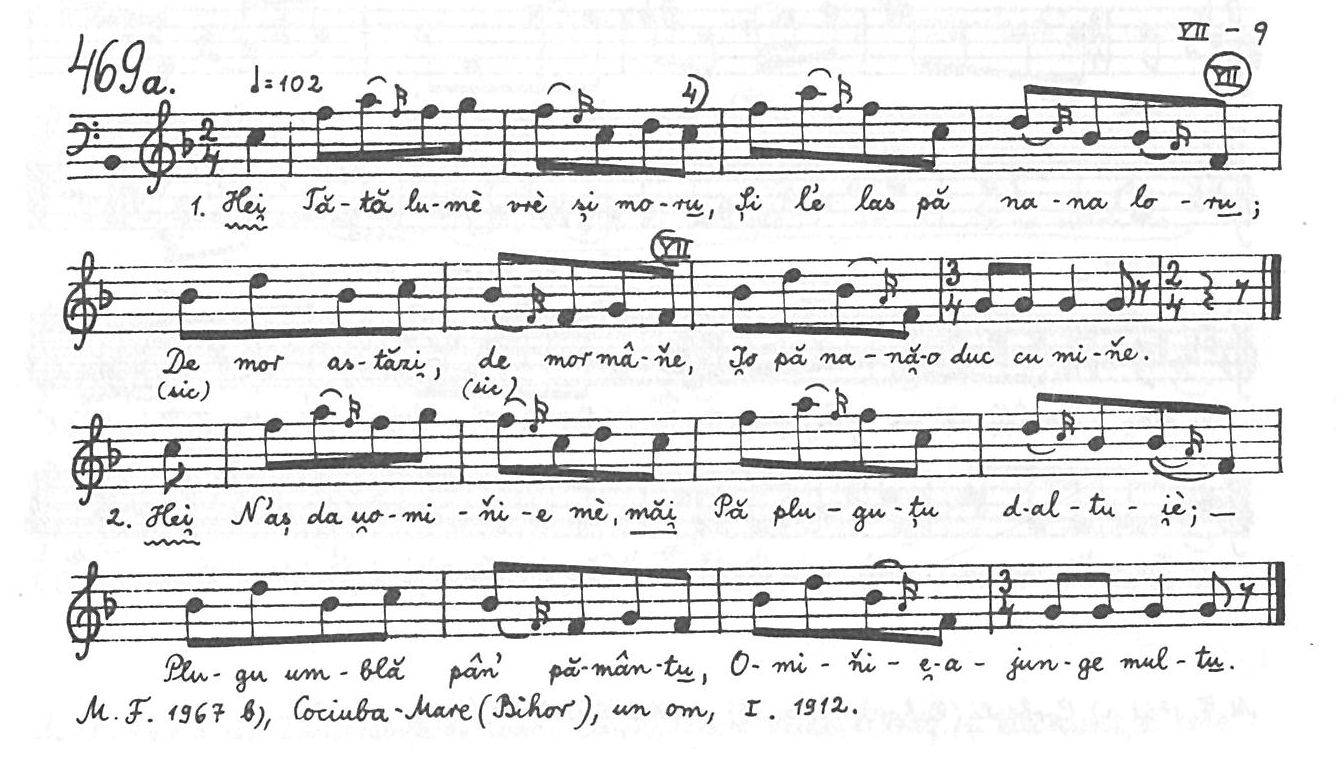 VII - 9
469a. ♩=102 4) VII
2/4
1. Hei̯ Tă-tă lu-mè vrè și̯ mo-ru, Și l'è las pă na-na lo-ru;
VII
3/4 2/4
De mor as-tăzi̯, de mor mâ-ňe, I̯o pă na-nă̯-o duc cu mi-ňe.
(sic) (sic)
2. Hei̯ N'aș da u̯o-mi-ňi-e mè, măi̯ Pă plu-gu-țu d-al-tu-i̯è; —
3/4
Plu-gu um-blă pân' pă-mân-tu, O-mi-ňi-e̯-a-jun-ge mul-tu.
M. F. 1967 b), Cociuba-Mare (Bihor), un om, I. 1912.